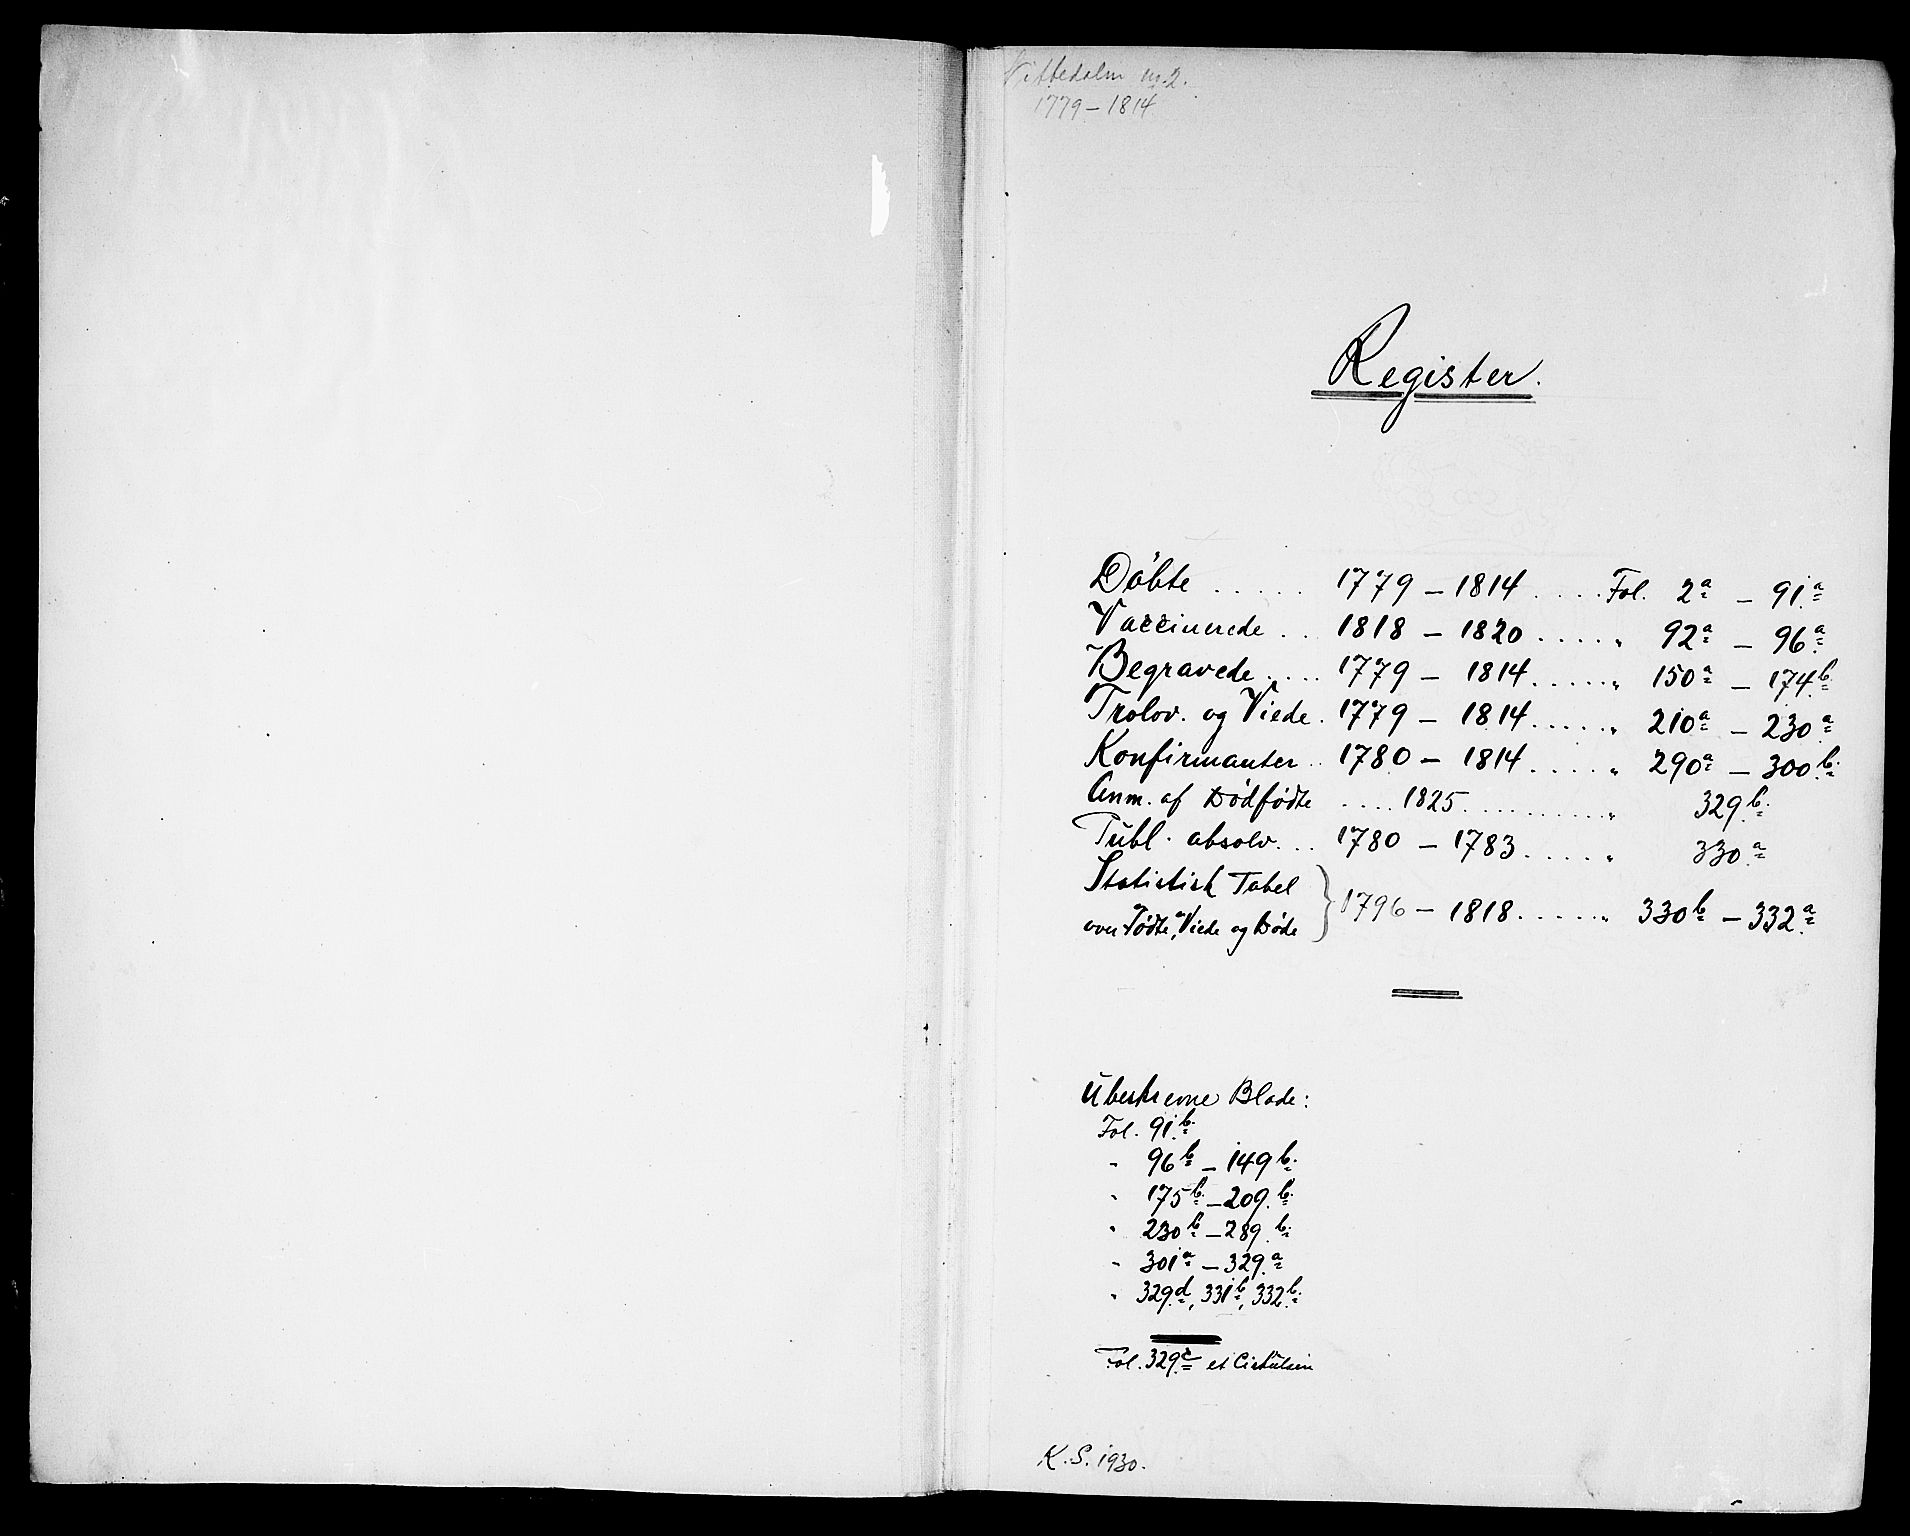 Nittedalen nr. 2.
1779 – 1814
Register.
Döbte ..... 1779 – 1814 ..... Fol. 2a – 91.a
Vaccinerede ... 1818 – 1820 ..... " 92a – 96.a
Begravede .... 1779 – 1814 ..... " 150a – 174.b.
Trolov. og Viede . 1779 – 1814 ..... " 210a – 230.a
Konfirmanter .. 1780 – 1814 ..... " 290a – 300.b.
Anm. af Dødfødte .... 1825 ......... " 329.b.
Publ. absolv. ... 1780 – 1783 ..... " 330.a
Statistisk Tabel
over Födte, Viede og Døde } 1796 – 1818 ..... " 330b – 332.a
Übeskrevne Blade:
Fol. 91.b.
" 96b – 149b.
" 175b. – 209.b.
" 230b – 289.b.
" 301a – 329.a
" 329.d, 331b, 332b.
Fol. 329.c et Cirkülære
K. S. 1930.